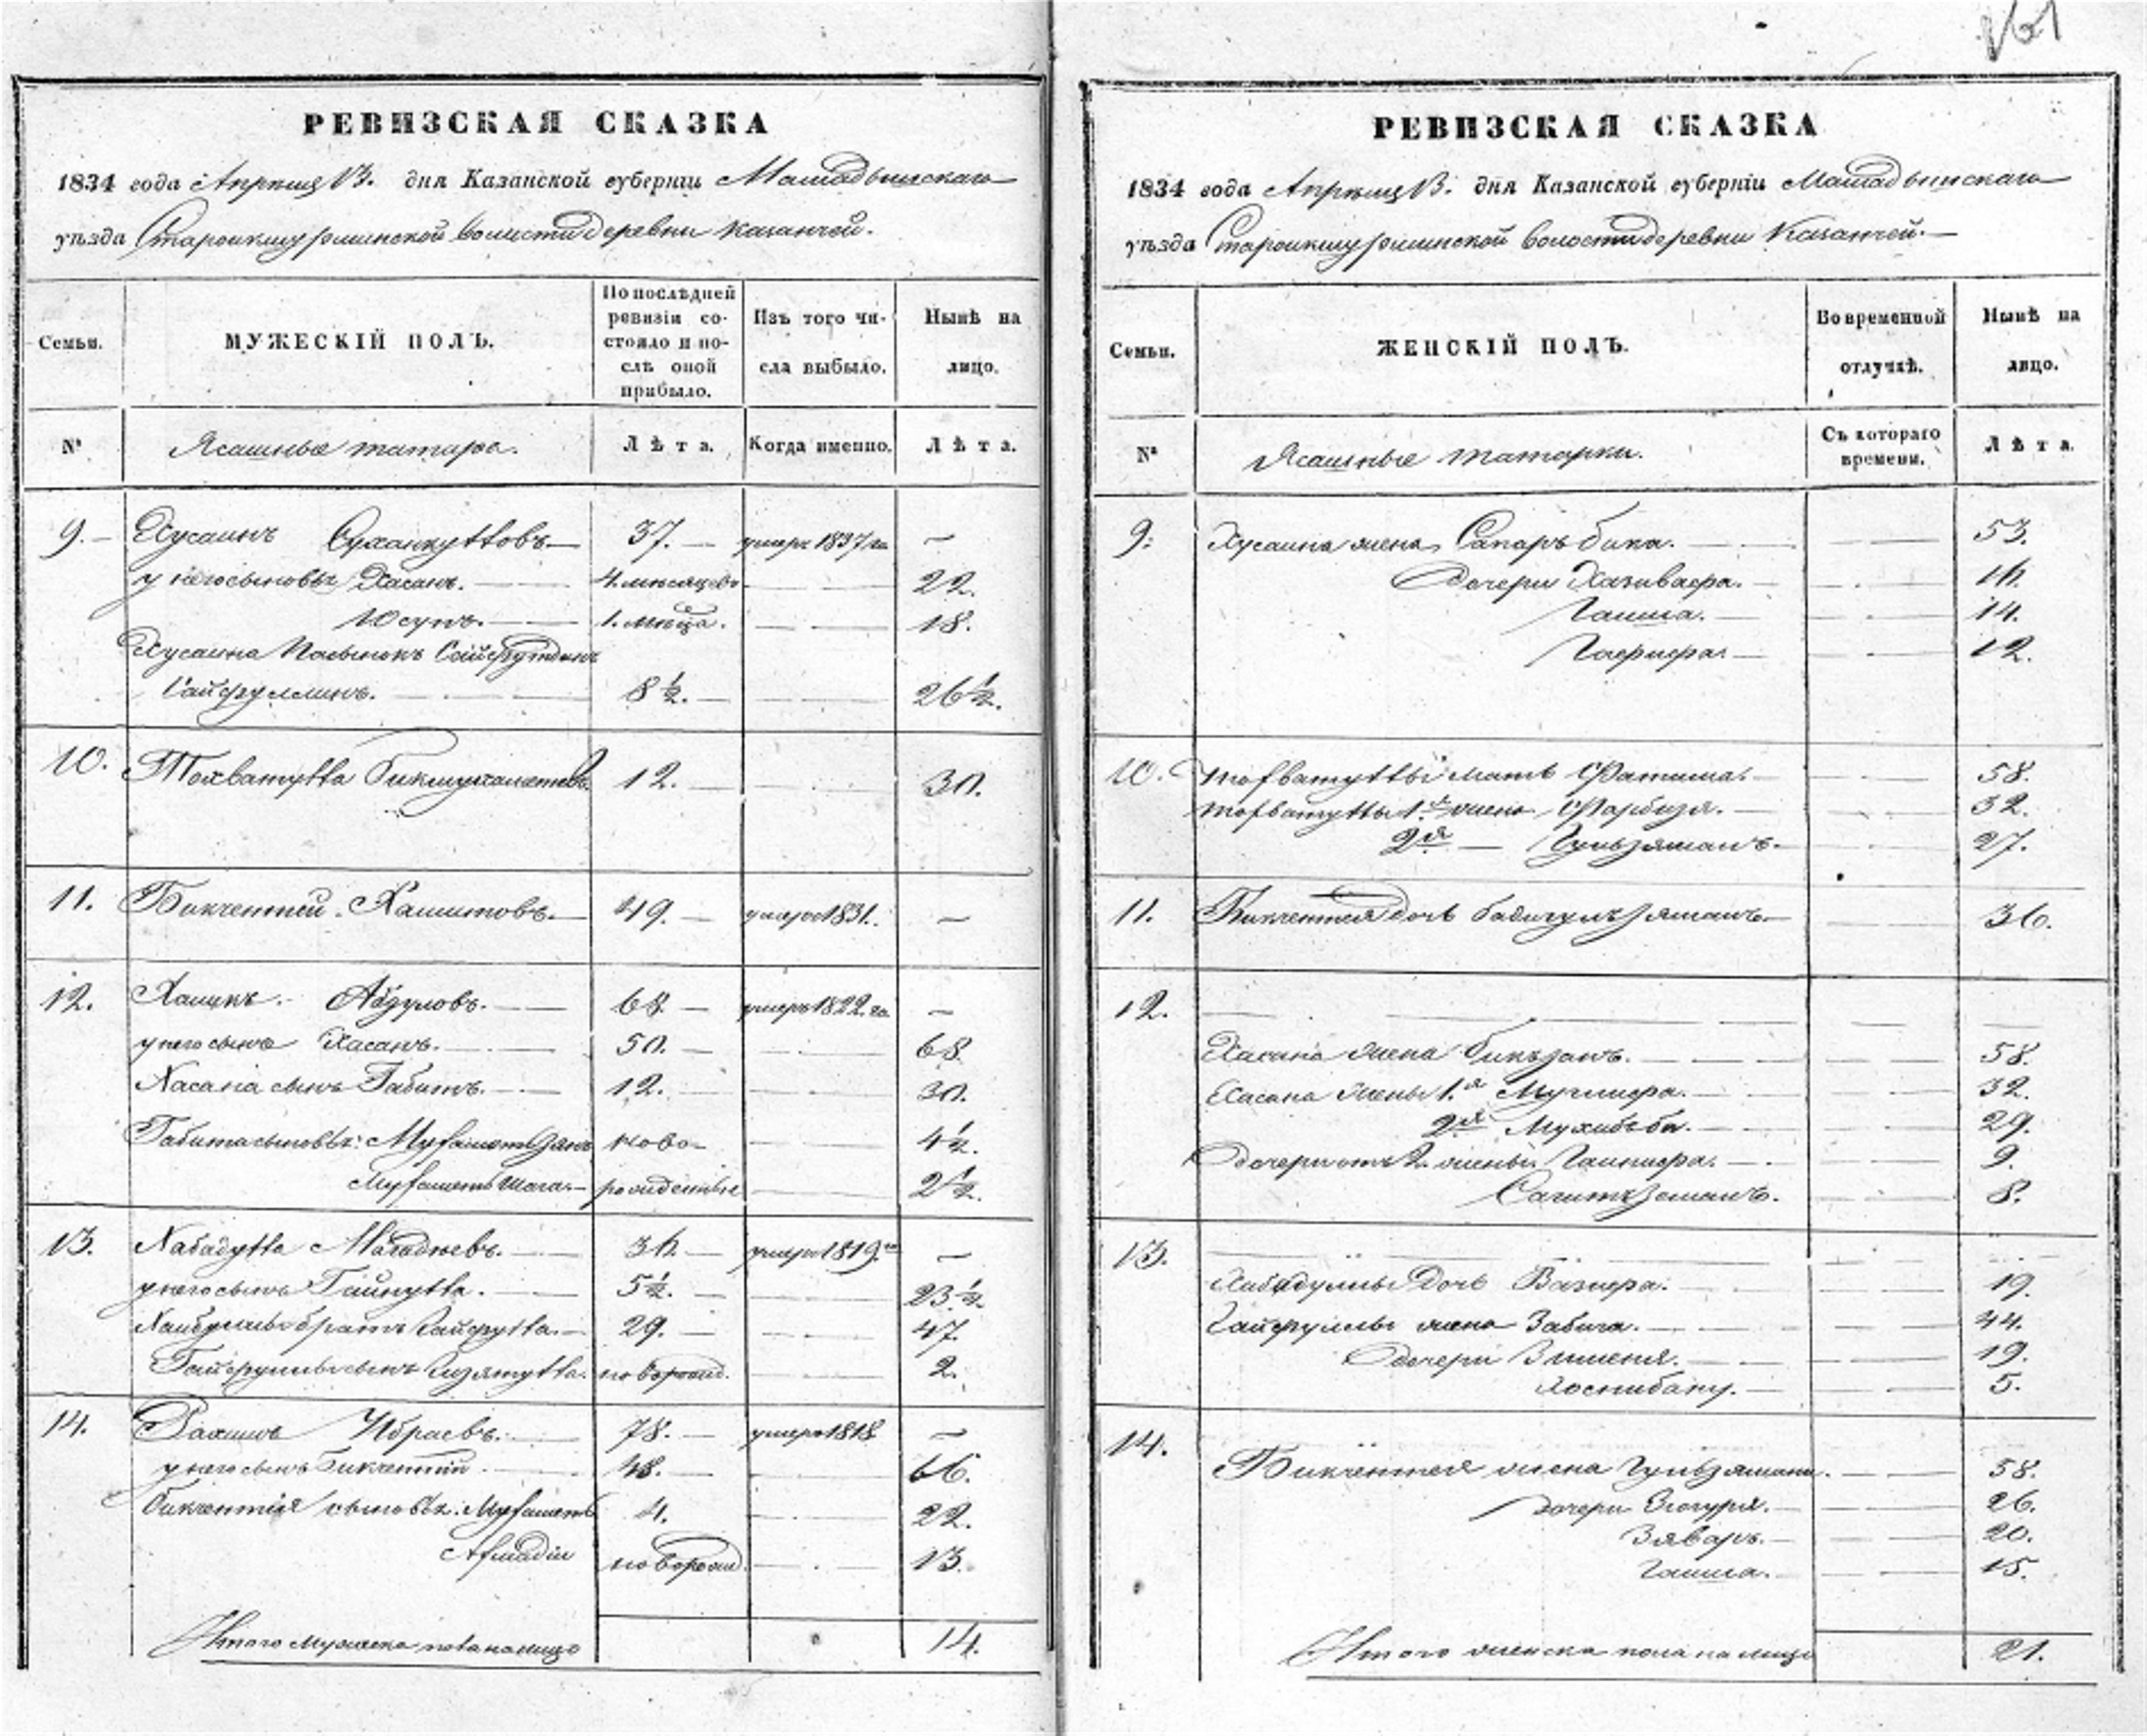 161
РЕВИЗСКАЯ СКАЗКА
1834 года Апреля 13. дня Казанской губерніи Мамадышскаго
уѣзда Староикшурминской волости деревни Казанчей.
Семьи.
МУЖЕСКІЙ ПОЛЪ.
По послѣдней ревизіи со-
стояло и по-
слѣ оной
прибыло.
Изъ того чи-
сла выбыло.
Нынѣ на
лицо.
№
Ясашные татара.
Лѣта.
Когда именно.
Лѣта.
9. Хусаинъ 37. умеръ 1837 го —
у него сыновья Хасанъ. 4. мѣсяцовъ 22.
Юсупъ. 1. мѣсца. 18.
Хусаина Пасынокъ Сайфутдинъ
Гайфуллинъ. 8½. 26½.
10. Тохватулла Бикмухаметовъ 12. 30.
11. Бикчентей Хамитовъ. 49. умеръ 1831. —
12. Абдуловъ. 68. умеръ 1822. го —
у него сынъ Хасанъ. 50. 68.
Хасана сынъ Габитъ. 12. 30.
Габита сыновья: Мухаметзянъ ново- 4½.
Мухаметшага. рожденные 2½.
13. Хабадулла 36. умеръ 1819. го —
у него сынъ Гайнулла. 5½. 23½.
братъ Гайфулла. 29. 47.
Гайфуллы сынъ Гизятулла. новорожд. 2.
14. Рахимъ Ибраевъ. 78. умеръ 1818 —
у него сынъ Бикчентей. 48. 66.
Бикчентея сыновья: Мухаметъ 4. 22.
Ахмадіи новорожд. 13.
Итого мужеска пола на лицо 14.
РЕВИЗСКАЯ СКАЗКА
1834 года Апреля 13. дня Казанской губерніи Мамадышскаго
уѣзда Староикшурминской волости деревни Казанчей.
Семьи.
ЖЕНСКІЙ ПОЛЪ.
Во временной
отлучкѣ.
Нынѣ на
лицо.
№
Ясашные татарки.
Съ котораго
времени.
Лѣта.
9. Хусаина жена Сапаръ бика. 53.
дочери 16.
Гаиша. 14.
12.
10. Тохватуллы мать Фатима. 58.
Тохватуллы 1я жена Фарбизя. 32.
2я — Гульзяманъ. 27.
11. Бикчентея дочь Бадигулъзяманъ. 36.
12.
Хасана жена 58.
Хасана жены 1.я 32.
2я 29.
дочери отъ 2. жены 9.
8.
13.
дочь Вазифа. 19.
Гайфуллы жена 44.
дочери 19.
Хоснибану. 5.
14.
Бикчентея жена Гульзямань. 58.
дочери 26.
Зяваръ. 20.
Гаиша. 15.
Итого женска пола на лицо 21.